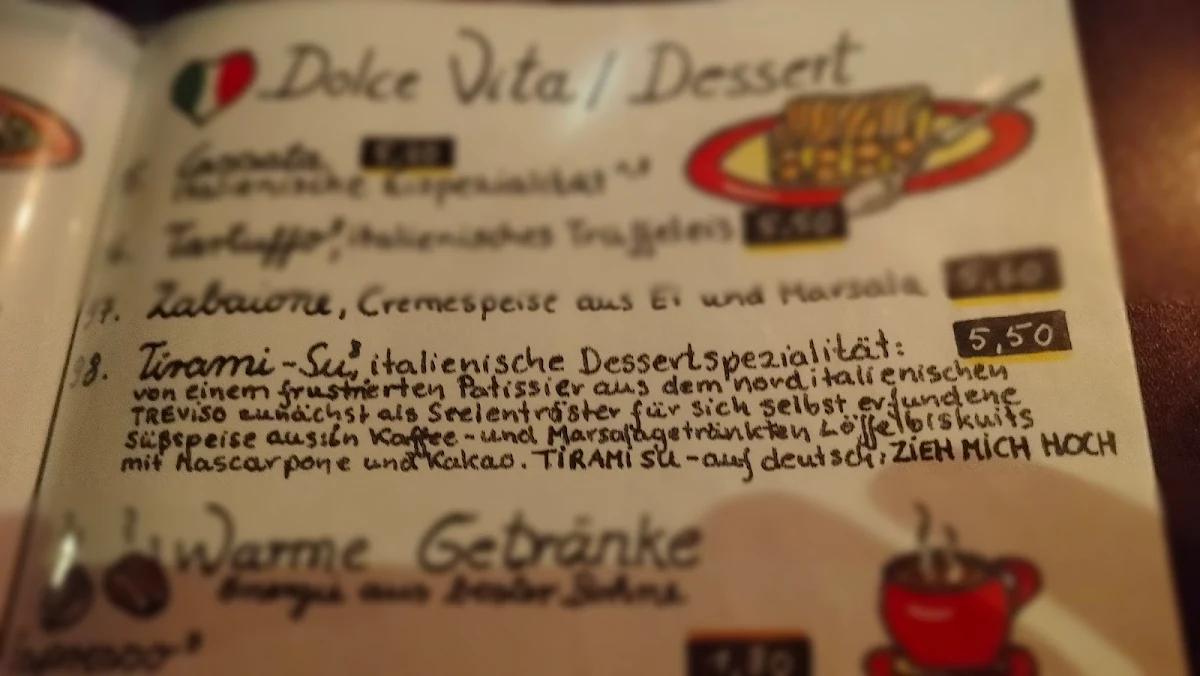 Dolce Vita / Dessert
Cassata,
italienische Eisspezialität
Tartuffo, italienisches Trüffeleis 5,50
97. Zabaione, Cremespeise aus Ei und Marsala 5,60
98. Tirami-Su,⁸ italienische Dessertspezialität: 5,50
von einem frustrierten Patissier aus dem norditalienischen
TREVISO zunächst als Seelentröster für sich selbst erfundene
Süßspeise aus in Kaffee-und Marsalagetränkten Löffelbiskuits
mit Mascarpone und Kakao. TIRAMI SU-auf deutsch: ZIEH MICH HOCH
Warme Getränke
Energie aus bester Bohne
Espresso
1,80